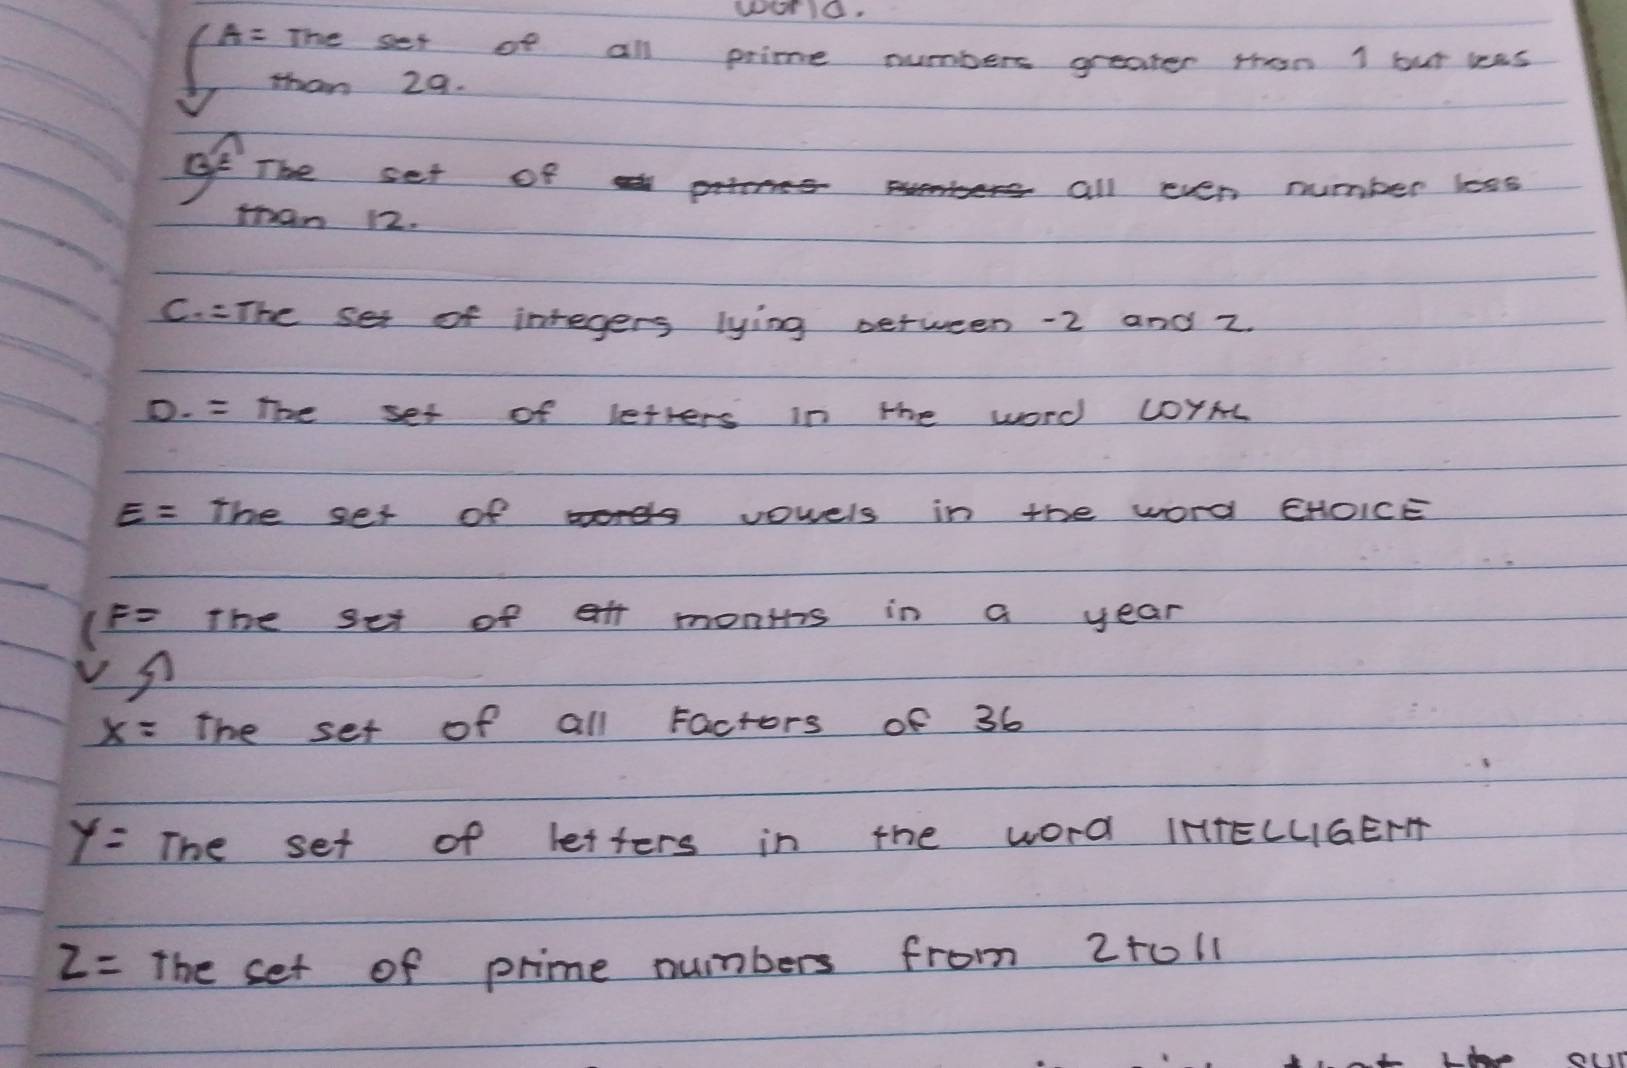 world.
A = The set of all prime numbers greater than 1 but less
than 29.
B = The set of all even number less
than 12.
C. = The set of integers lying between -2 and 2.
D. = The set of letters in the word LOYAL
E = The set of words vowels in the word CHOICE
F = The set of all months in a year
X = The set of all Factors of 36
Y = The set of letters in the word INTELLIGENT
Z = The set of prime numbers from 2 to 11
that the